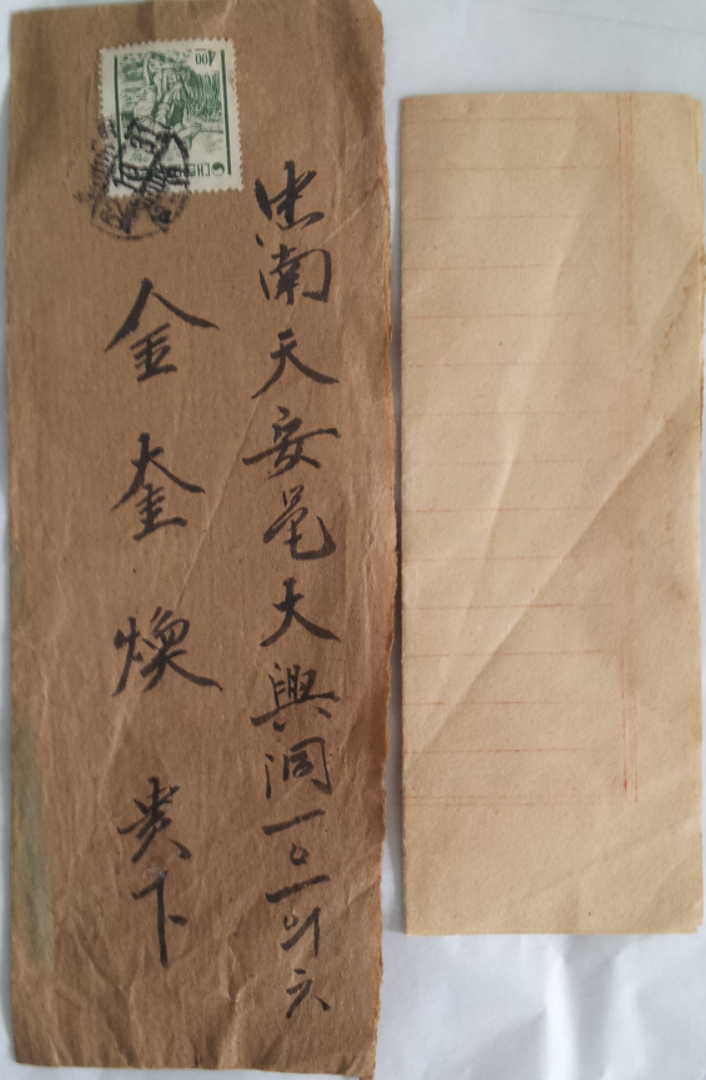 忠南天安邑大興洞一〇一의六
金奎煥 貴下
4 00